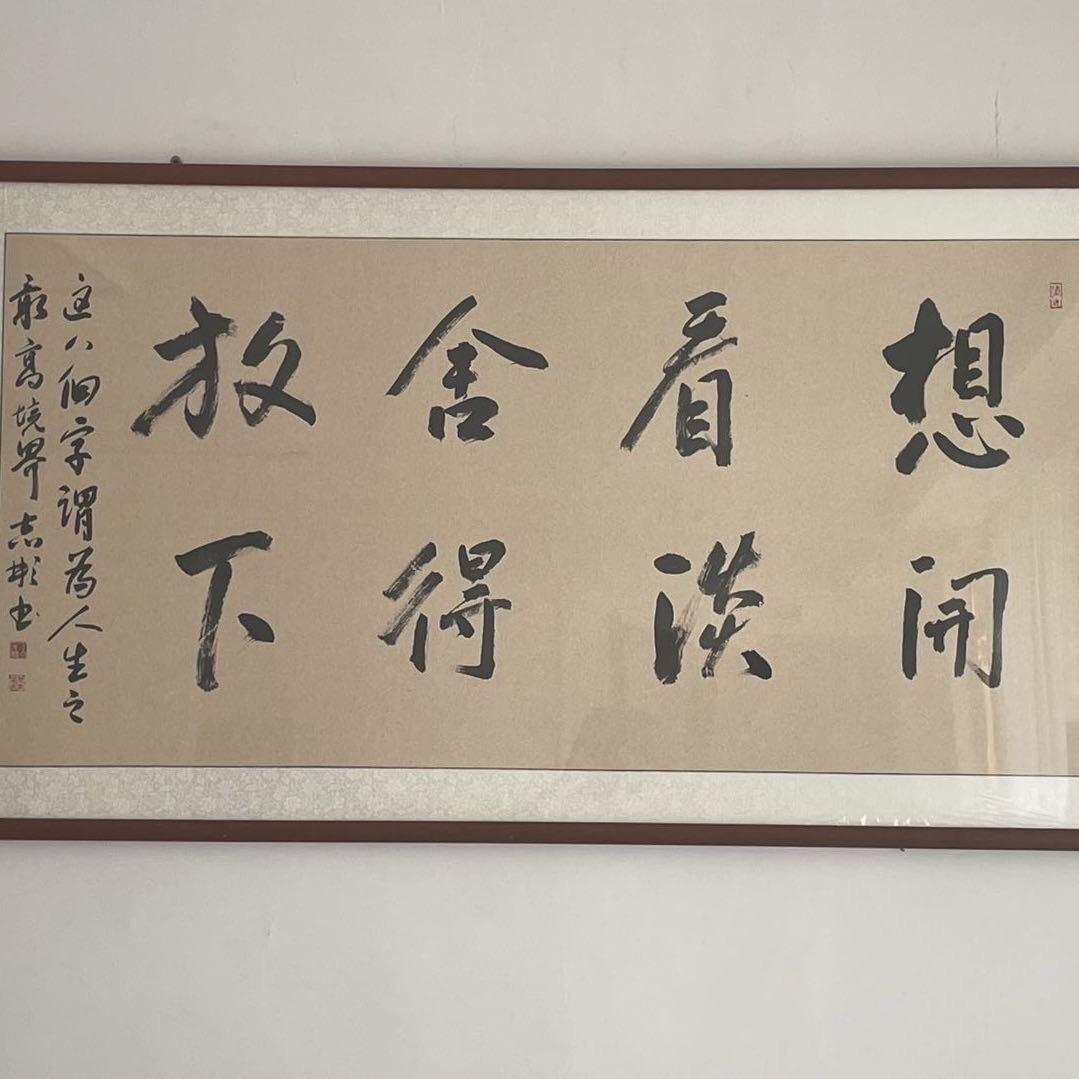 想开
看淡
舍得
放下
这八個字謂為人生之
最高境界志彬书